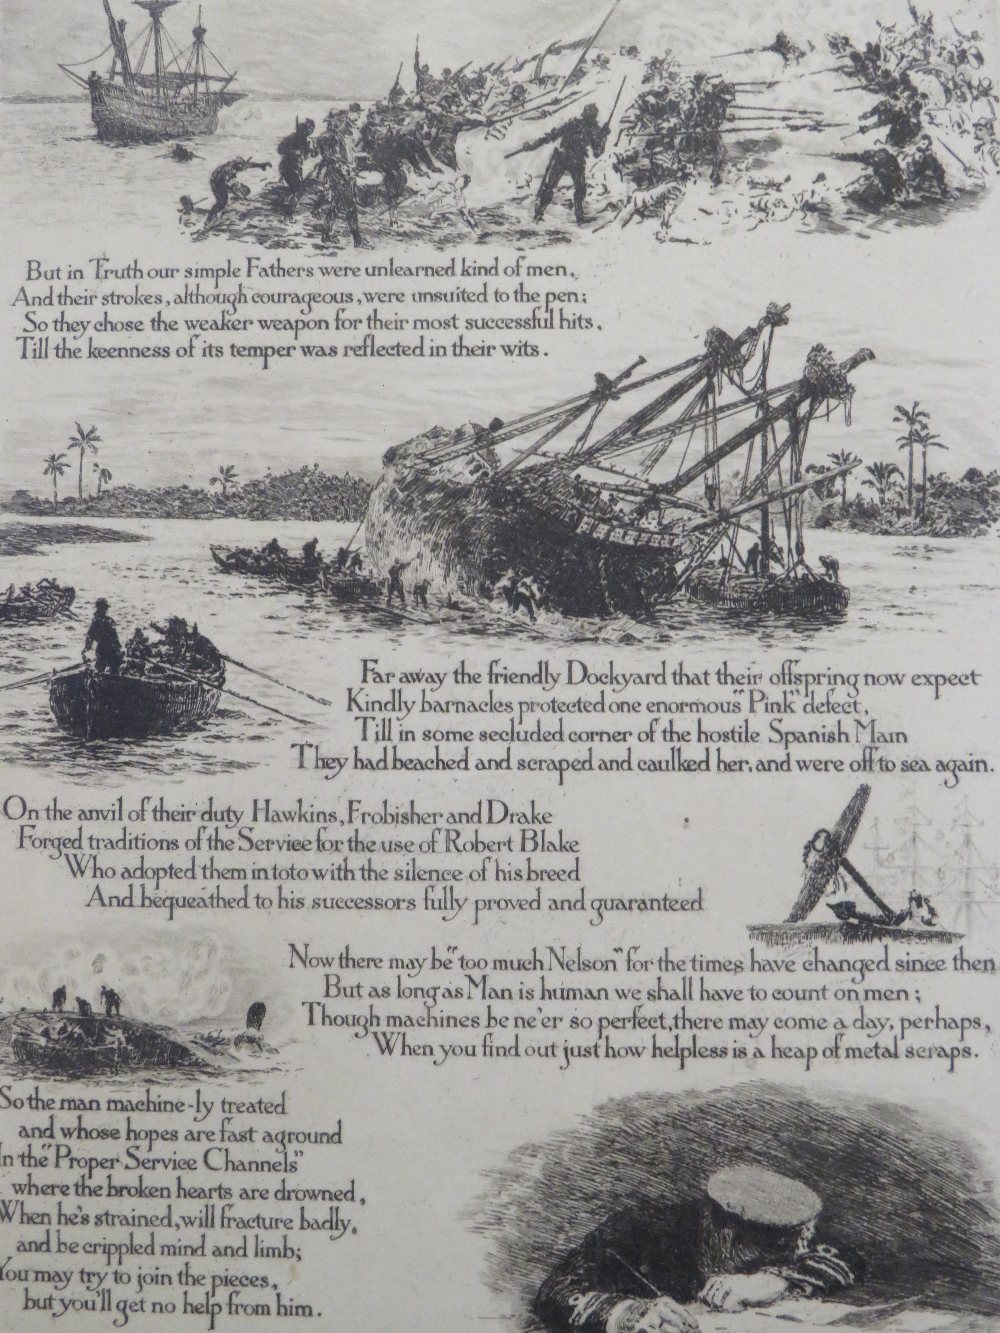 But in Truth our simple Fathers were unlearned kind of men,
And their strokes, although courageous, were unsuited to the pen;
So they chose the weaker weapon for their most successful hits,
Till the keenness of its temper was reflected in their wits.
Far away the friendly Dockyard that their offspring now expect
Kindly barnacles protected one enormous "Pink" defect,
Till in some secluded corner of the hostile Spanish Main
They had beached and scraped and caulked her, and were off to sea again.
On the anvil of their duty Hawkins, Frobisher and Drake
Forged traditions of the Service for the use of Robert Blake
Who adopted them in toto with the silence of his breed
And bequeathed to his successors fully proved and guaranteed
Now there may be "too much Nelson" for the times have changed since then
But as long as Man is human we shall have to count on men;
Though machines be ne'er so perfect, there may come a day, perhaps,
When you find out just how helpless is a heap of metal scraps.
So the man machine-ly treated
and whose hopes are fast aground
In the "Proper Service Channels"
where the broken hearts are drowned,
When he's strained, will fracture badly,
and be crippled mind and limb;
You may try to join the pieces,
but you'll get no help from him.